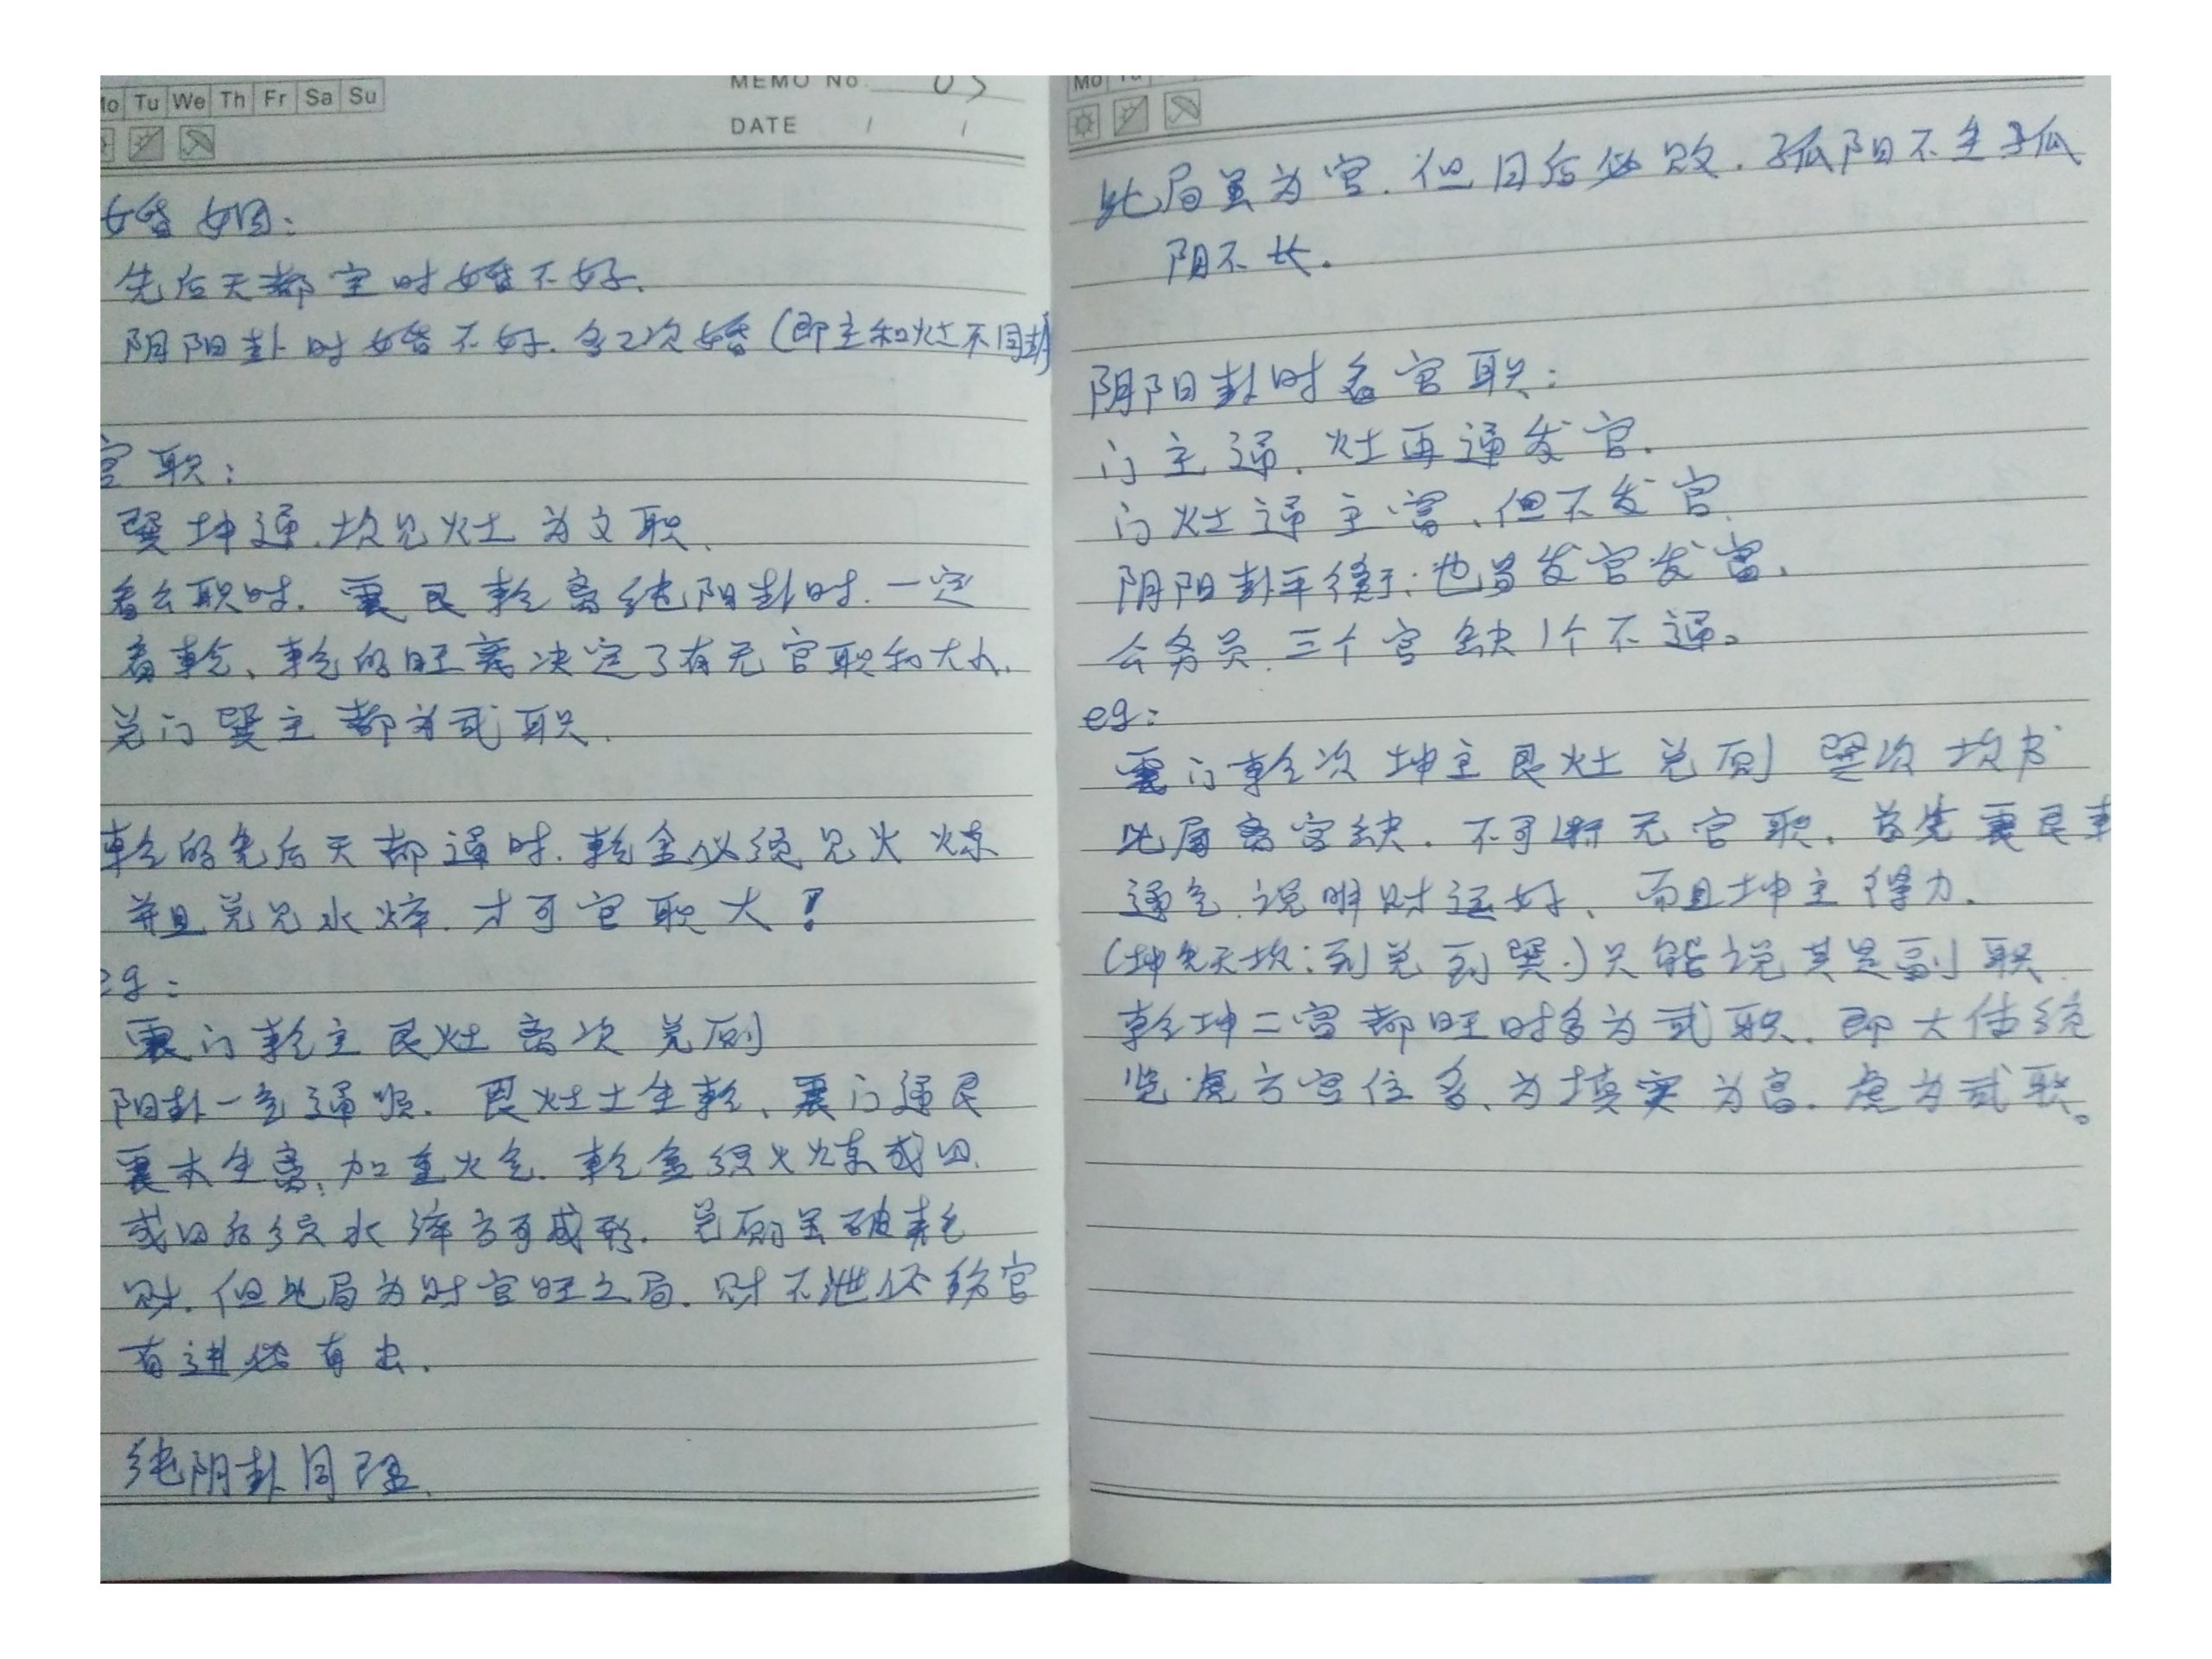 Mo Tu We Th Fr Sa Su
MEMO No. 05
DATE / /
婚姻:
先后天都空时婚不好.
阴阳卦时婚不好.多2次婚(即主和灶不同卦)
官职:
巽坤通.坎见灶为文职.
看公职时.震艮乾离纯阳卦时.一定
看乾、乾的旺衰决定了有无官职和大小.
兑门巽主都为武职.
乾的先后天都通时.乾金必须见火炼
并且兑见水焠.才可官职大!
eg:
震门乾主艮灶离次兑厕
阳卦一气通顺.艮灶土生乾、震门通艮
震木生离,加重火气.乾金须火炼成凹.
成凹后须水淬方可成形.兑厕虽破乾
财.但此局为财官旺之局.财不泄伤官
有进必有出.
纯阴卦同理.
Mo Tu
此局虽为官.但日后必败.孤阳不生孤
阴不长.
阴阳卦时看官职:
门主通.灶再通发官.
门灶通主富、但不发官.
阴阳卦平衡:也易发官发富.
公务员.三个宫缺1个不通。
eg:
震门乾次坤主艮灶兑厕巽次坎书
此局离宫缺.不可断无官职.首先震艮乾
通气.说明财运好、而且坤主得力.
(坤先天坎:到兑到巽.)只能说其是副职
乾坤二宫都旺时多为武职.即大体统
览虚方宫位多、为填实为富.虚为武职。